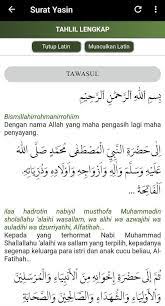 Surat Yasin
TAHLIL LENGKAP
Tutup Latin
Munculkan Latin
TAWASUL
بِسْمِ اللَّهِ الرَّحْمَنِ الرَّحِيْمِ
Bismillahirrohmanirrohiim
Dengan nama Allah yang maha pengasih lagi maha
penyayang.
إِلَى حَضْرَةِ النَّبِيِّ الْمُصْطَفَى مُحَمَّدٍ صَلَّى اللهُ
عَلَيْهِ وَسَلَّمَ وَآلِهِ وَأَزْوَاجِهِ وَأَوْلَادِهِ وَذُرِّيَّاتِهِ.
الْفَاتِحَةُ ...
ilaa hadrotin nabiyil musthofa Muhammadin
sholallahu 'alaihi wasallam, wa alihi wa azwajihi wa
auladihi wa dzurriyatihi, Alfatihah...
Kepada yang terhormat Nabi Muhammad
Shallallahu 'alaihi wa sallam yang terpilih, kepadanya
segenap keluarga para istri dan anak cucu beliau, Al-
Fatihah...
إِلَى حَضْرَةِ إِخْوَانِهِ مِنَ الْأَنْبِيَاءِ وَالْمُرْسَلِيْنَ
وَالْأَوْلِيَاءِ وَالشُّهَدَاءِ وَالصَّالِحِيْنَ وَالصَّحَابَةِ